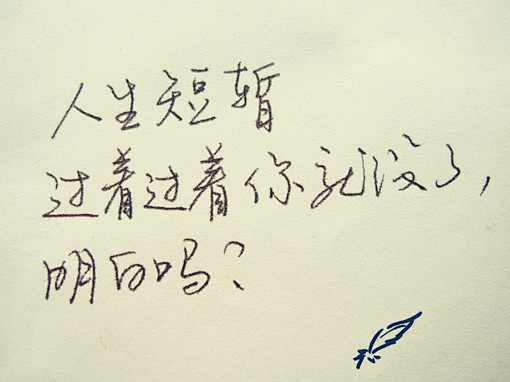 人生短暂
过着过着你就没了,
明白吗?